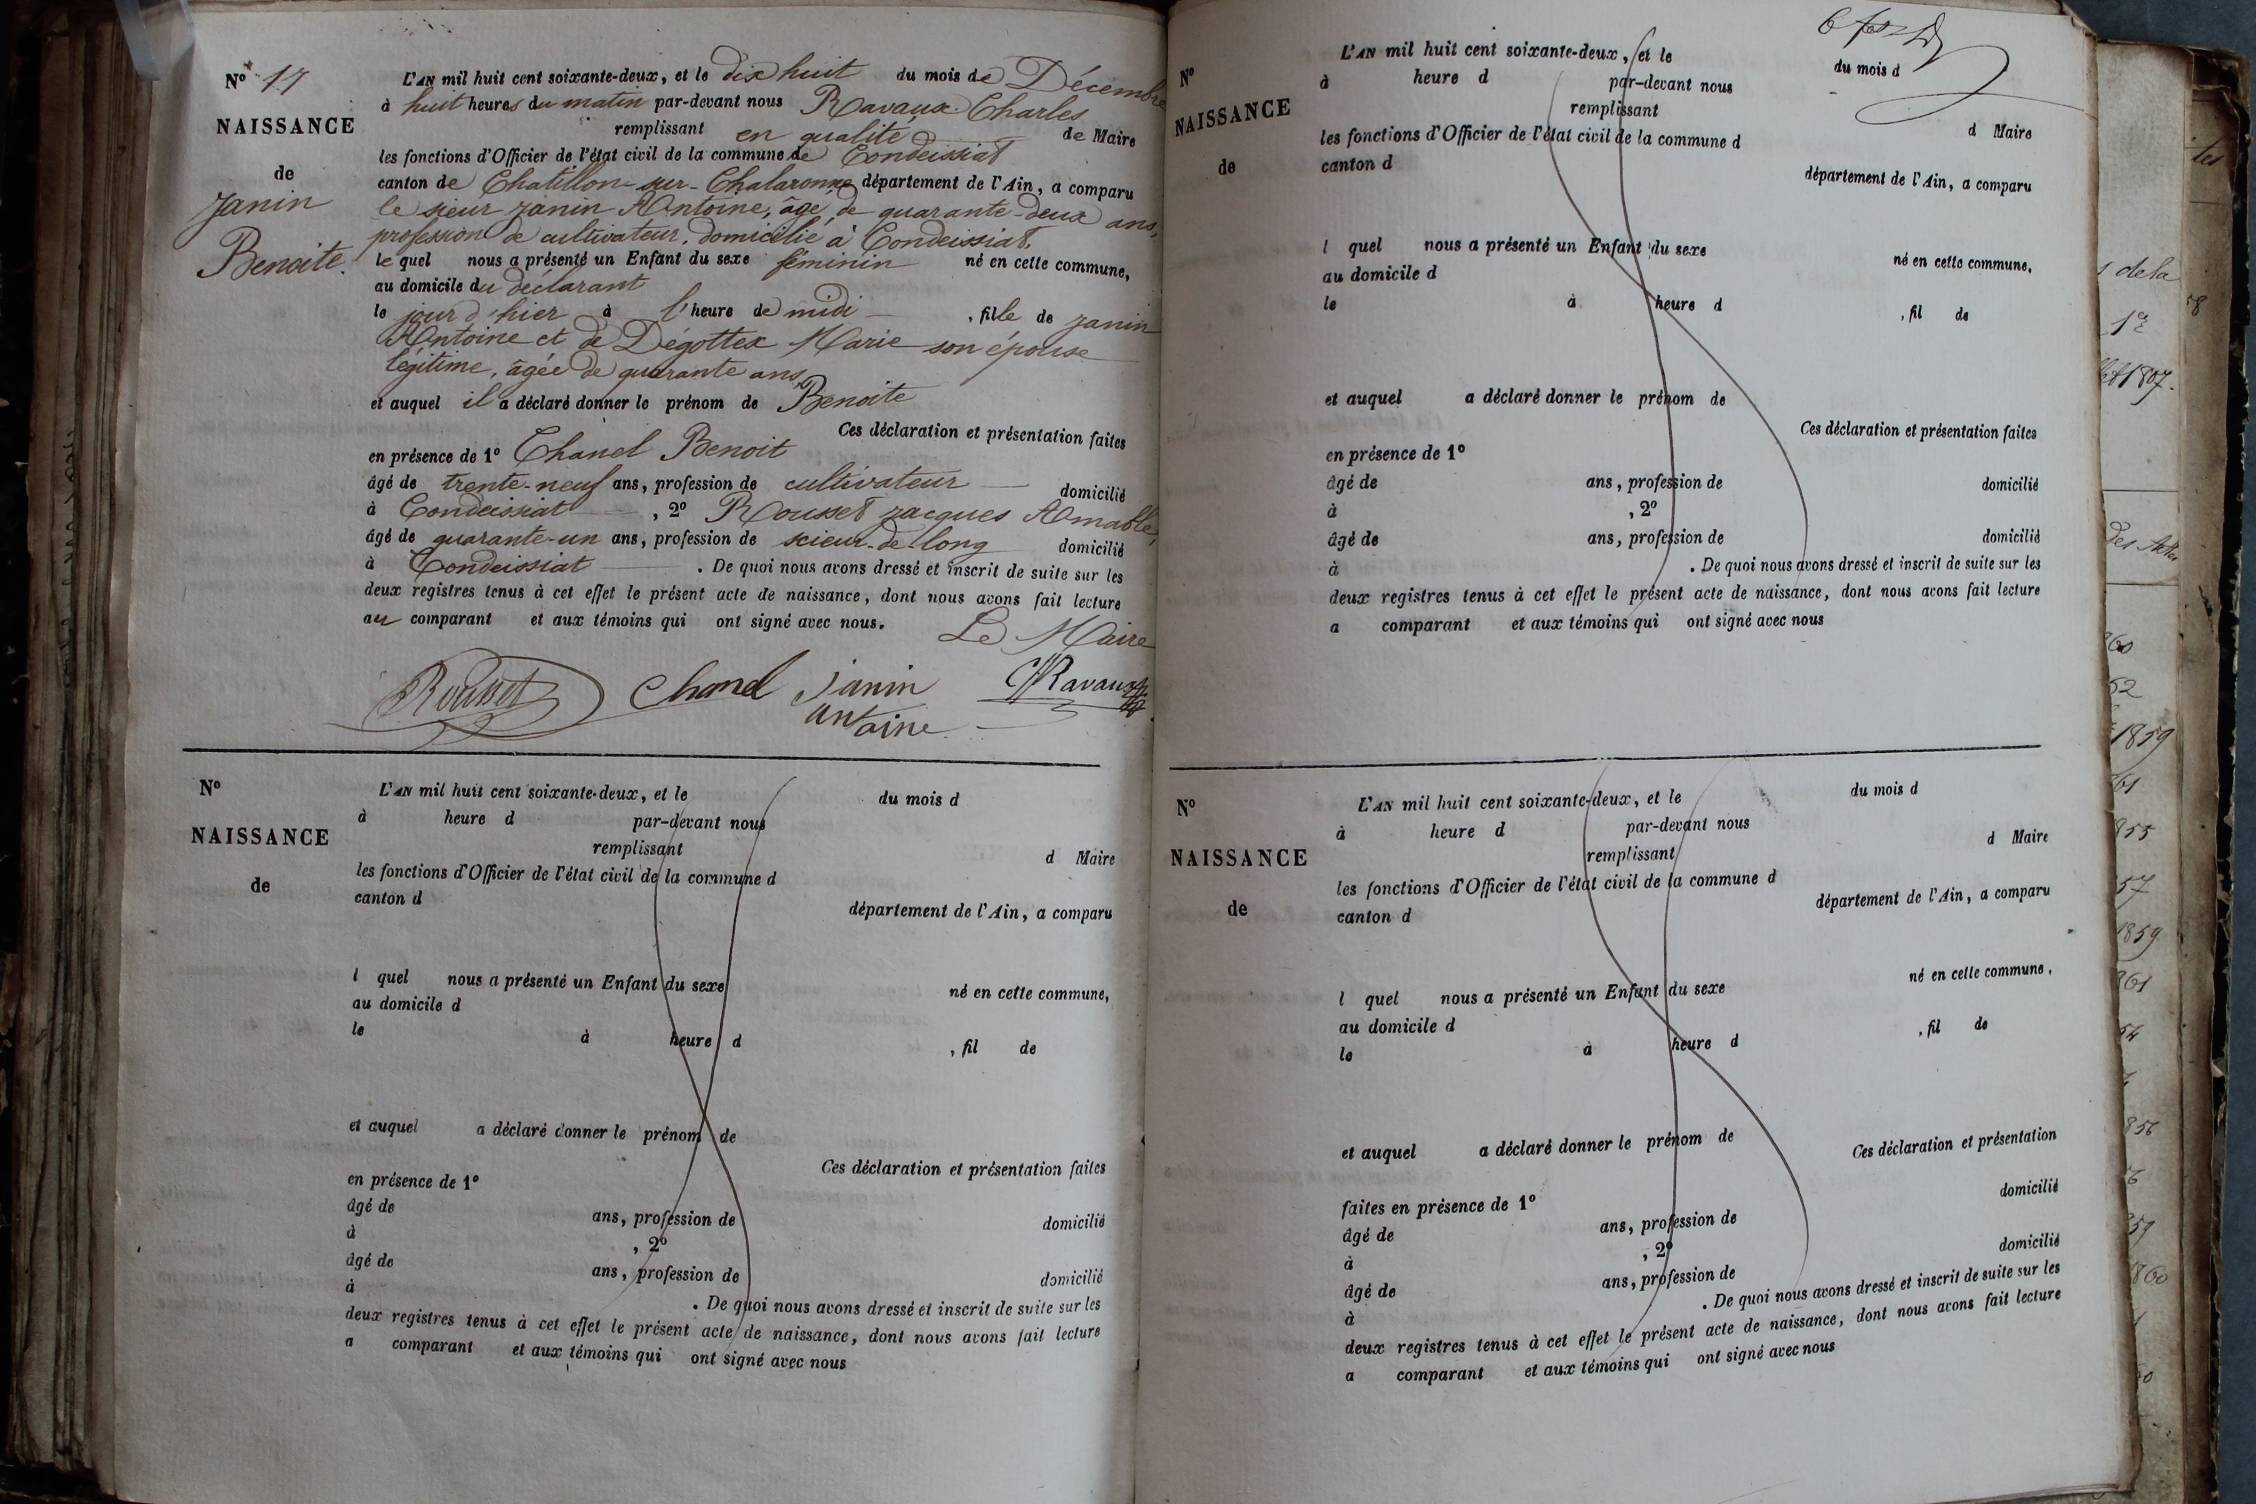 N° 17
NAISSANCE
de
Janin
Benoite.
L'AN mil huit cent soixante-deux, et le dix huit du mois de Décembre
à huit heures du matin par-devant nous Ravaux Charles
remplissant en qualité de Maire
les fonctions d'Officier de l'état civil de la commune de Condeissiat
canton de Chatillon-sur-Chalaronne département de l'Ain, a comparu
le sieur Janin Antoine, âgé de quarante-deux ans,
profession de cultivateur, domicilié à Condeissiat,
lequel nous a présenté un Enfant du sexe féminin né en cette commune,
au domicile du déclarant
le jour d'hier à l'heure de midi , fille de Janin
Antoine et de Dégottex Marie son épouse
légitime, âgée de quarante ans,
et auquel il a déclaré donner le prénom de Benoite
Ces déclaration et présentation faites
en présence de 1° Chanel Benoit
âgé de trente-neuf ans, profession de cultivateur domicilié
à Condeissiat , 2° Rousset Jacques Amable,
âgé de quarante-un ans, profession de scieur-de-long domicilié
à Condeissiat . De quoi nous avons dressé et inscrit de suite sur les
deux registres tenus à cet effet le présent acte de naissance, dont nous avons fait lecture
au comparant et aux témoins qui ont signé avec nous.
Le Maire
Rousset Chanel Janin Ravaux
antoine
N°
NAISSANCE
de
L'AN mil huit cent soixante-deux, et le du mois d
à heure d par-devant nous
remplissant d Maire
les fonctions d'Officier de l'état civil de la commune d
canton d département de l'Ain, a comparu
l quel nous a présenté un Enfant du sexe né en cette commune,
au domicile d
le à heure d , fil de
et auquel a déclaré donner le prénom de
Ces déclaration et présentation faites
en présence de 1°
âgé de ans, profession de domicilié
à , 2°
âgé de ans, profession de domicilié
à . De quoi nous avons dressé et inscrit de suite sur les
deux registres tenus à cet effet le présent acte de naissance, dont nous avons fait lecture
a comparant et aux témoins qui ont signé avec nous
N°
NAISSANCE
de
L'AN mil huit cent soixante-deux, et le du mois d
à heure d par-devant nous
remplissant d Maire
les fonctions d'Officier de l'état civil de la commune d
canton d département de l'Ain, a comparu
l quel nous a présenté un Enfant du sexe né en cette commune,
au domicile d
le à heure d , fil de
et auquel a déclaré donner le prénom de
Ces déclaration et présentation faites
en présence de 1°
âgé de ans, profession de domicilié
à , 2°
âgé de ans, profession de domicilié
à . De quoi nous avons dressé et inscrit de suite sur les
deux registres tenus à cet effet le présent acte de naissance, dont nous avons fait lecture
a comparant et aux témoins qui ont signé avec nous
N°
NAISSANCE
de
L'AN mil huit cent soixante-deux, et le du mois d
à heure d par-devant nous
remplissant d Maire
les fonctions d'Officier de l'état civil de la commune d
canton d département de l'Ain, a comparu
l quel nous a présenté un Enfant du sexe né en cette commune,
au domicile d
le à heure d , fil de
et auquel a déclaré donner le prénom de
Ces déclaration et présentation
faites en présence de 1° domicilié
âgé de ans, profession de
à , 2° domicilié
âgé de ans, profession de
à . De quoi nous avons dressé et inscrit de suite sur les
deux registres tenus à cet effet le présent acte de naissance, dont nous avons fait lecture
a comparant et aux témoins qui ont signé avec nous
de la
1807.
des Actes
1859
1859